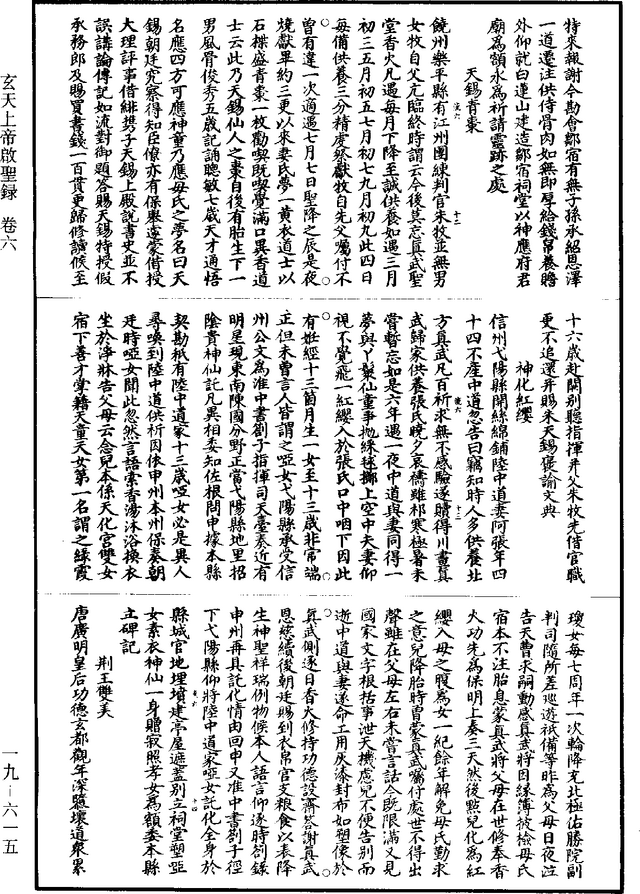 玄天上帝啟聖録　卷六
一九—六一五
特來報謝令勘會鄒宿有無子孫承紹恩澤
一道還注供侍骨肉如無即厚給錢帛養贍
外仰就白蓮山建造鄒宿祠堂以神應府君
廟為額永為祈請靈跡之處
天錫青棗
饒州樂平縣有江州團練判官朱牧並無男
女牧自父亢臨終時謂云今後莫忘真武聖
堂香火凡遇每月下降至誠供養如遇三月
初三五月初五七月初七九月初九此四日
每備供養三分精虔祭獻牧自先父囑付不
曾有違一次適遇七月七日聖降之辰是夜
燒獻畢約三更以來妻氏夢一黃衣道士以
石楪盛青棗一枚勸喫既喫覺滿口異香道
士云此乃天錫仙人之棗自後有胎生下一
男風骨俊秀五歲記誦聰敏七歲天才通悟
名應四方可應神童乃應母氏之夢名曰天
錫朝廷究察得知臣僚亦有保舉遂蒙借授
大理評事借緋携子天錫上殿說書史並不
誤講論傳記如流對御題答賜天錫特授假
承務郎及賜買書錢一百貫更歸修讀候至
十六歲赴闕別聽指揮并父朱牧先借官職
更不追還并賜朱天錫褒諭文典
神化紅纓
信州弋陽縣開絲綿鋪陸中道妻阿張年四
十四不產中道忽告曰竊知時人多供養北
方真武凡百祈求無不感驗遂贖得川畫真
武歸家供養張氏曉夕哀禱雖祁寒極暑未
嘗暫忘如是六年遇一夜中道與妻同得一
夢與丫鬟仙童爭拋綵毬擲上空中夫妻仰
視不覺飛一紅纓入於張氏口中咽下因此
有姙經十三箇月生一女至十三歲非常端
正但未曾言人皆謂之啞女弋陽縣承受信
州公文為准中書劄子指揮司天臺奏近有
明星現東南陳國分野正當弋陽縣地里招
陰貴神仙託凡異相委知佐根問申據本縣
契勘秖有陸中道家十三歲啞女必是異人
尋喚到陸中道供析因依申州本州保奏朝
廷時啞女聞此忽然言語索香湯沐浴換衣
坐於淨牀告父母云念兒本係天化宮雙女
宿下善才掌籍天童天女第一名謂之緣霞
瓊女每七周年一次輪降充北極佑勝院副
判司隨所差巡遊祇備等昨為父母日夜泣
告天曹求嗣動感真武將因緣簿被檢母氏
宿本不注胎息蒙真武將父母在世修奉香
火功先為保明上奏三天然後點兒化為紅
纓入母之腹為女一紀餘年解免母氏勤求
之意兒降胎時曾蒙真武囑付處世不得出
聲雖在父母左右未嘗言話今既限滿又見
國家文字根括事泄天機慮兒不便告別而
逝中道與妻遂命工用灰漆封布如塑像於
真武側逐日香火修持功德設齋答謝真武
恩慈續後朝廷賜到衣帛官支粮食以表降
生神聖祥瑞例物候本人語言仰逐時劄錄
申州再具託化情由回申又准中書劄子徑
下弋陽縣仰將陸中道家啞女託化全身於
縣城官地埋墳建亭屋遮蓋別立祠堂塑亞
女素衣神仙一身贈寂照孝女為額委本縣
立碑記
荆王雙美
唐廣明皇后功德玄都觀年深隳壞道眾累